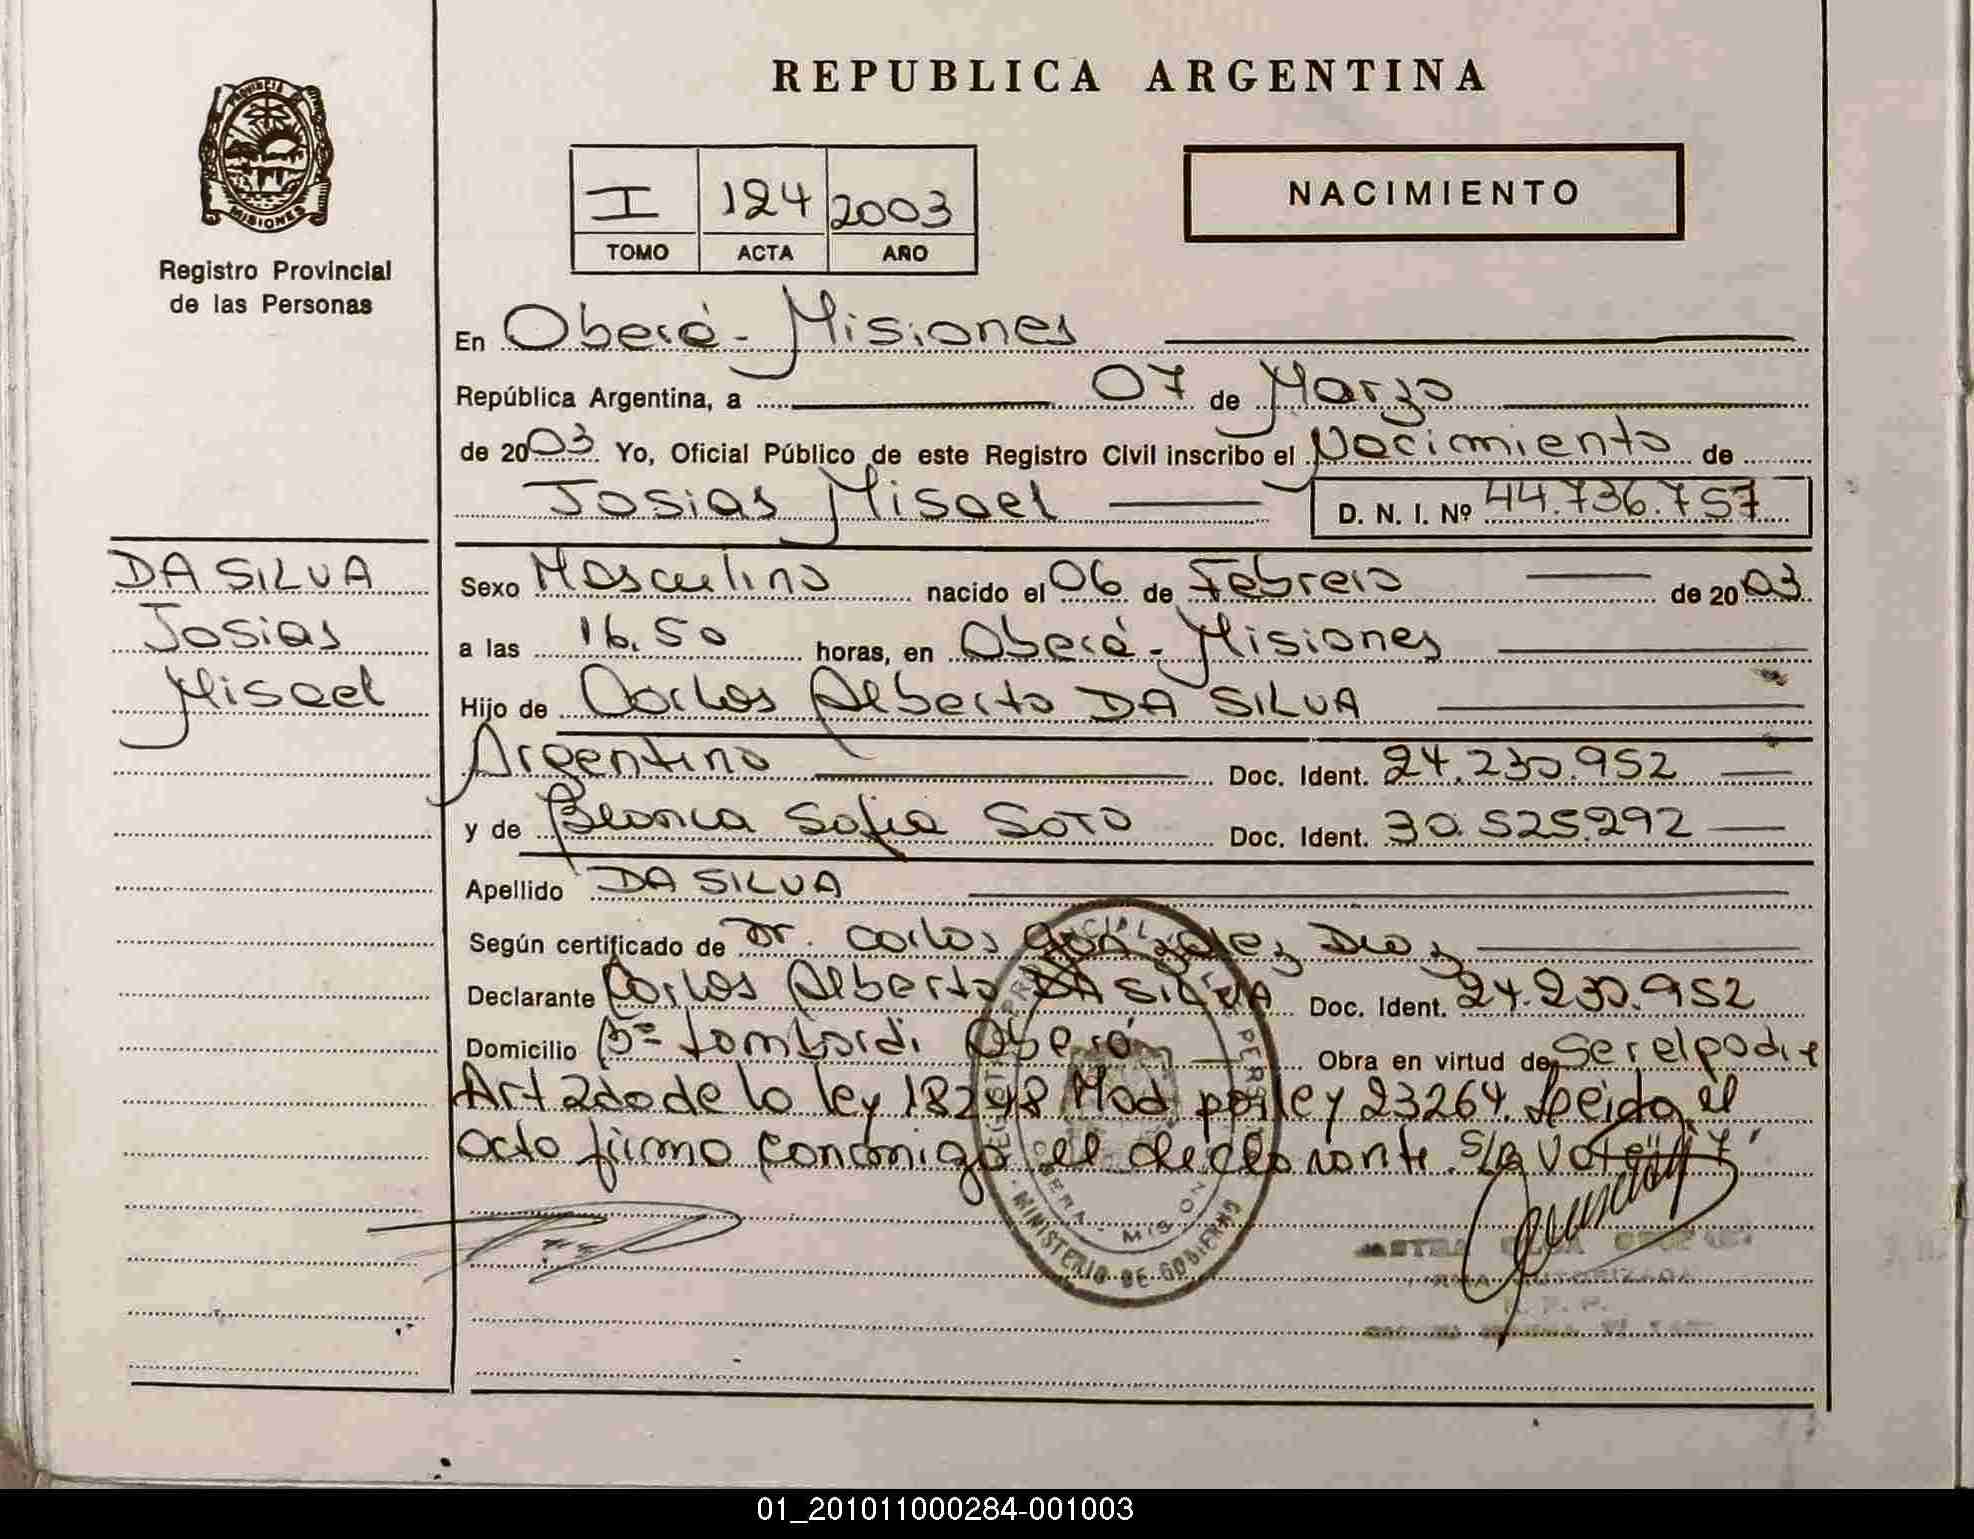 REPUBLICA ARGENTINA
PROVINCIA DE
MISIONES
Registro Provincial
de las Personas
I 124 2003
TOMO ACTA AÑO
NACIMIENTO
En Oberá - Misiones
República Argentina, a 07 de Marzo
de 2003 Yo, Oficial Público de este Registro Civil inscribo el Nacimiento de
Josias Misael D. N. I. Nº 44.736.757
DA SILVA
Josias
Misael
Sexo Masculino nacido el 06 de Febrero de 2003
a las 16.50 horas, en Oberá - Misiones
Hijo de Carlos Alberto DA SILVA
Argentino Doc. Ident. 24.230.952
y de Blanca Sofia SOTO Doc. Ident. 30.525.292
Apellido DA SILVA
Según certificado de Dr. Carlos Gonzalez Diaz
Declarante Carlos Alberto DA SILVA Doc. Ident. 24.230.952
Domicilio Bº Lombardi Oberá Obra en virtud de Ser el padre
Art 2do de la ley 18248 Mod por ley 23264. Leida el
acta firma conmigo el declarante. S/R
MINISTERIO DE GOBIERNO
OBERA - MISIONES
FIRMA AUTORIZADA
R. P. P.
01_201011000284-001003